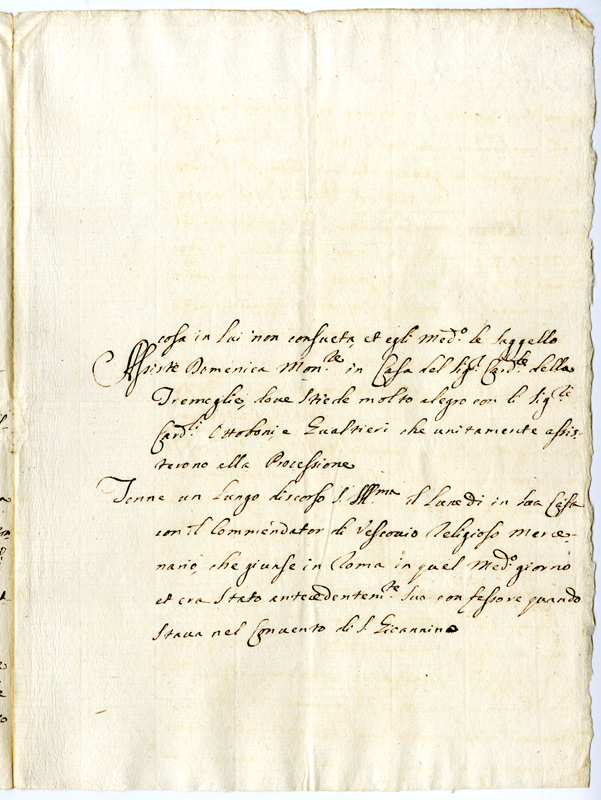 cosa in lui non consueta, et egli med.o le suggello
Assistè Domenica Mon.re in Casa del sig.r Card.le della
Tremoglie, dove stiede molto alegro con li sig.ri
Card.li Ottoboni, e Gualtieri che unitamente assis-
terono alla Processione
Tenne un lungo discorso S. Ill.ma il Lunedì in sua Casa
con il Commendator di Vescovio Religioso Merce-
nario, che giunse in Roma in quel med.o giorno
et era stato antecedentem.te suo confessore quando
stava nel Convento di S. Gioannino